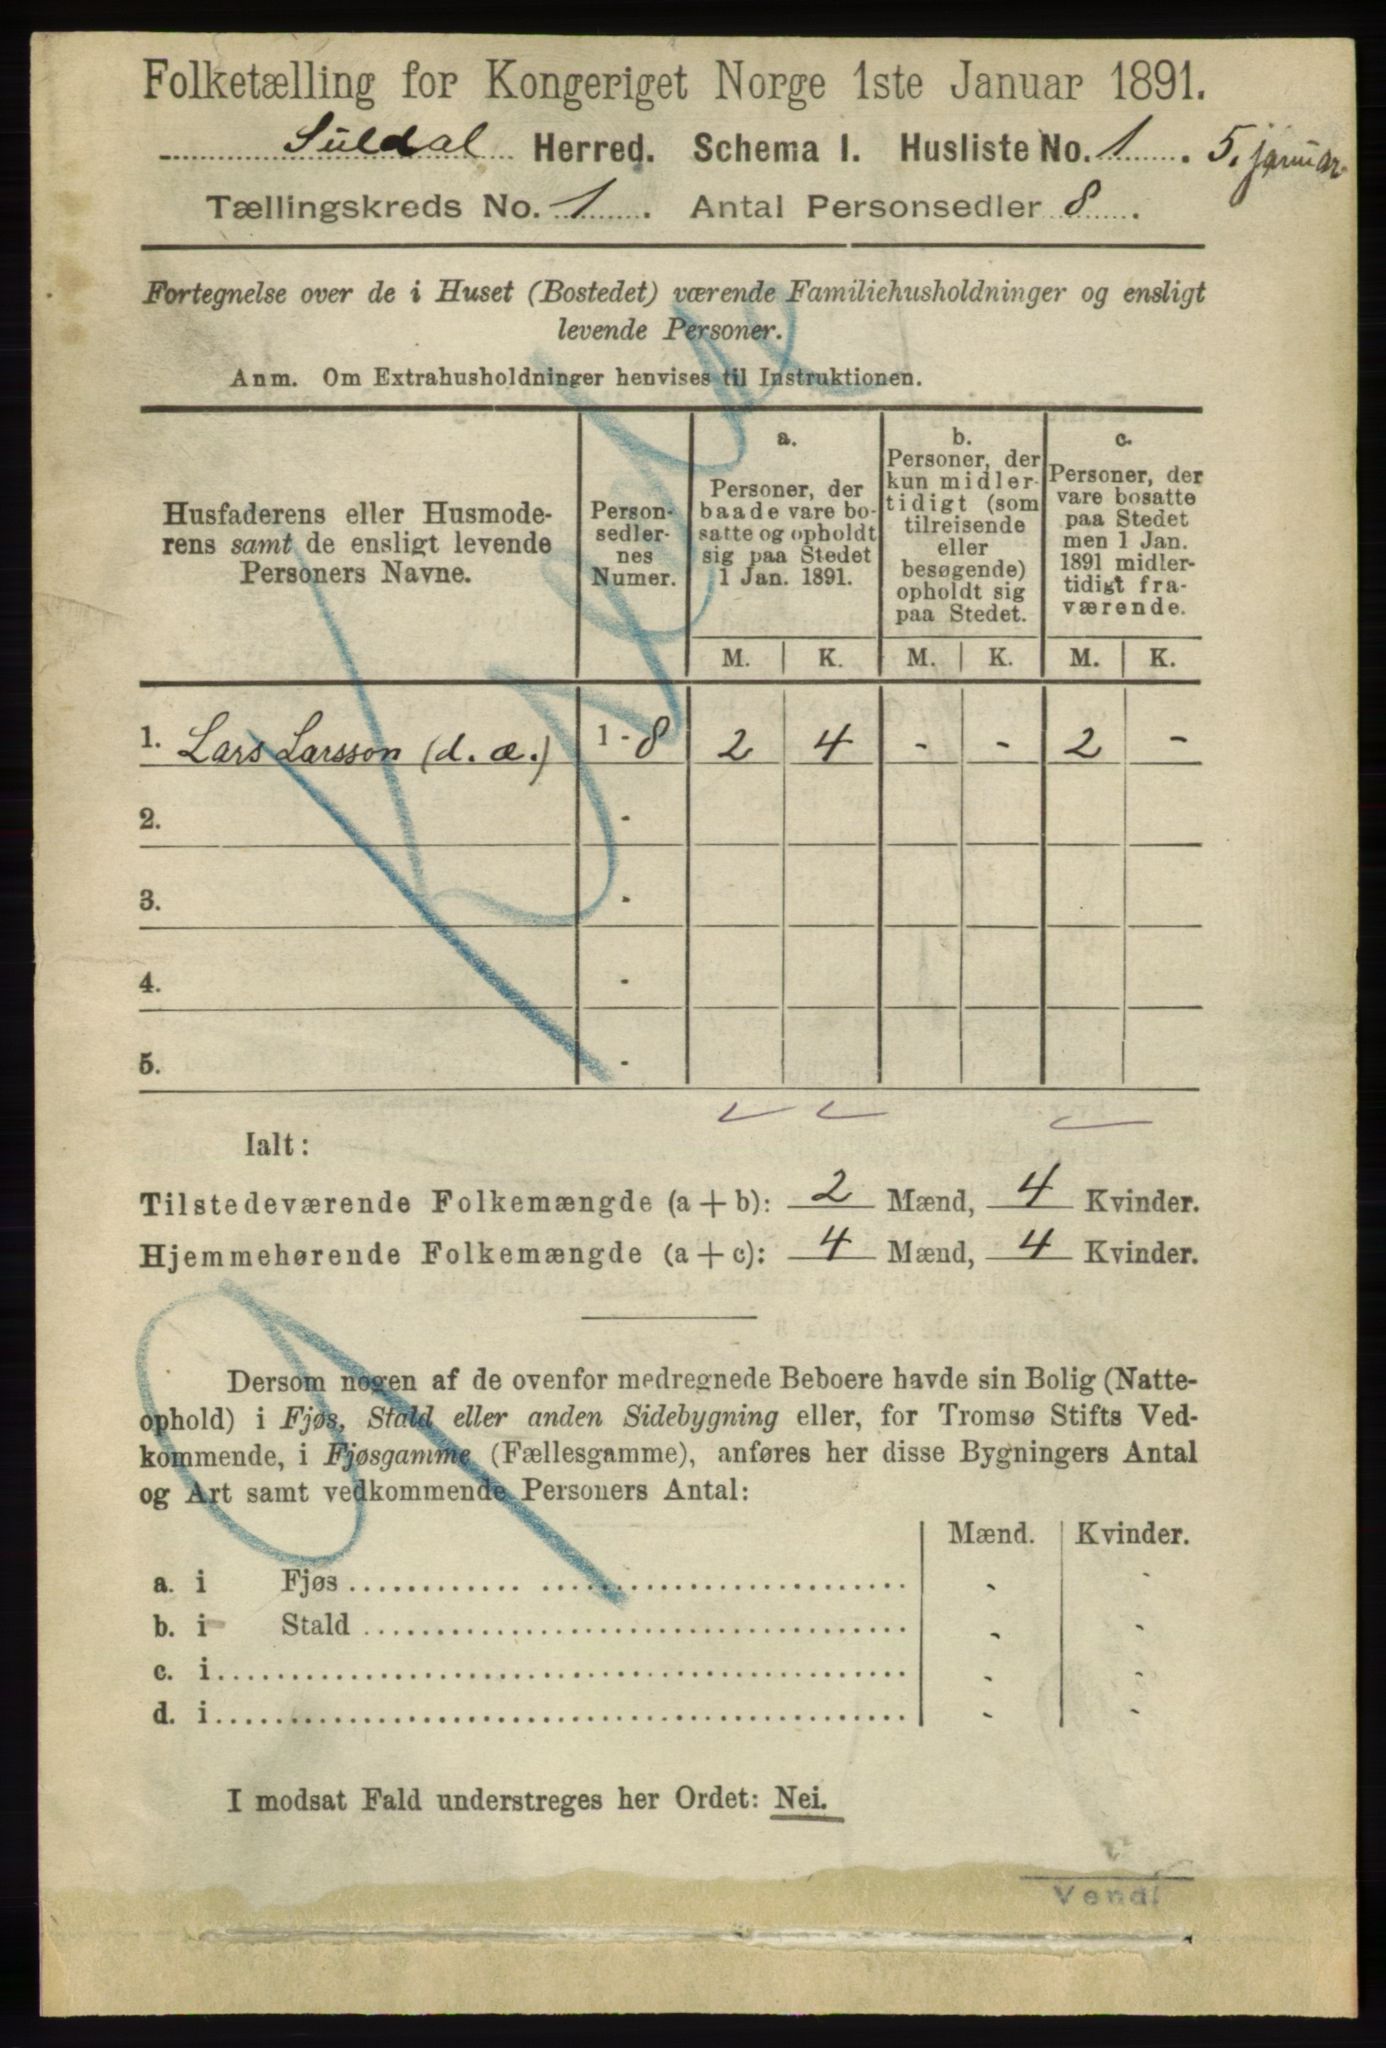 Folketælling for Kongeriget Norge 1ste Januar 1891.
Suldal Herred. Schema I. Husliste No. 1. 5. januar
Tællingskreds No. 1. Antal Personsedler 8.
Fortegnelse over de i Huset (Bostedet) værende Familiehusholdninger og ensligt
levende Personer.
Anm. Om Extrahusholdninger henvises til Instruktionen.
Husfaderens eller Husmode-
rens samt de ensligt levende
Personers Navne.
Person-
sedler-
nes
Numer.
a.
Personer, der
baade vare bo-
satte og opholdt
sig paa Stedet
1 Jan. 1891.
b.
Personer, der
kun midler-
tidigt (som
tilreisende
eller
besøgende)
opholdt sig
paa Stedet.
c.
Personer, der
vare bosatte
paa Stedet
men 1 Jan.
1891 midler-
tidigt fra-
værende.
M. K. M. K. M. K.
1. Lars Larsson (d. æ.) 1 - 8 2 4 - - 2 -
2. -
3. -
4. -
5. -
Ialt:
Tilstedeværende Folkemængde (a + b): 2 Mænd, 4 Kvinder.
Hjemmehørende Folkemængde (a + c): 4 Mænd, 4 Kvinder.
Dersom nogen af de ovenfor medregnede Beboere havde sin Bolig (Natte-
ophold) i Fjøs, Stald eller anden Sidebygning eller, for Tromsø Stifts Ved-
kommende, i Fjøsgamme (Fællesgamme), anføres her disse Bygningers Antal
og Art samt vedkommende Personers Antal:
Mænd. Kvinder.
a. i Fjøs - -
b. i Stald - -
c. i - -
d. i - -
I modsat Fald understreges her Ordet: Nei.
Vend!